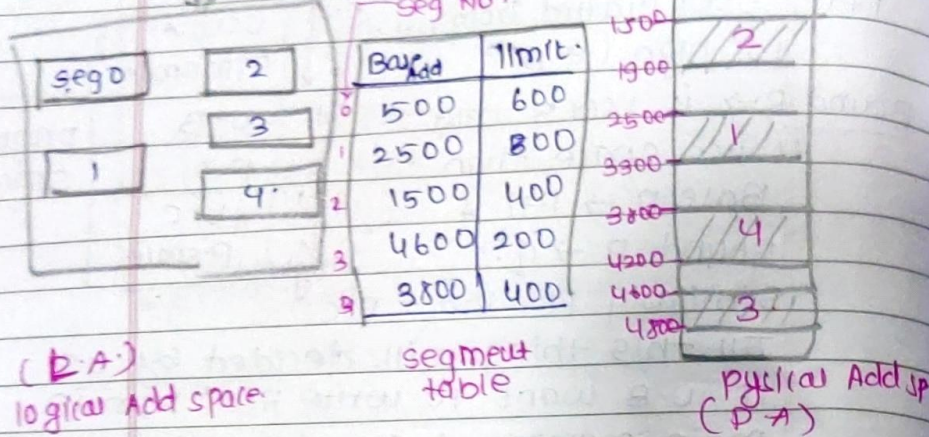 Seg No.
seg 0 2
3
1
4.
Base Add limit.
0 500 600
1 2500 800
2 1500 400
3 4600 200
3800 400
1500
2
1900
2500
1
3300
3800
4
4200
4600
3
4800
(L A.)
logical Add space.
segment
table
pysical Add sp
(P A)